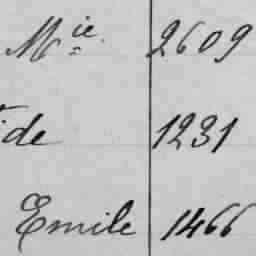 Mie 2609
de 1231
Emile 1466